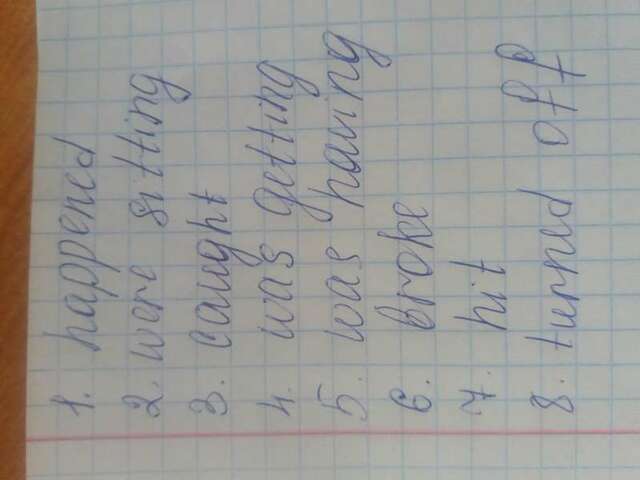 1. happened
2. were sitting
3. caught
4. was getting
5. was having
6. broke
7. hit
8. turned off